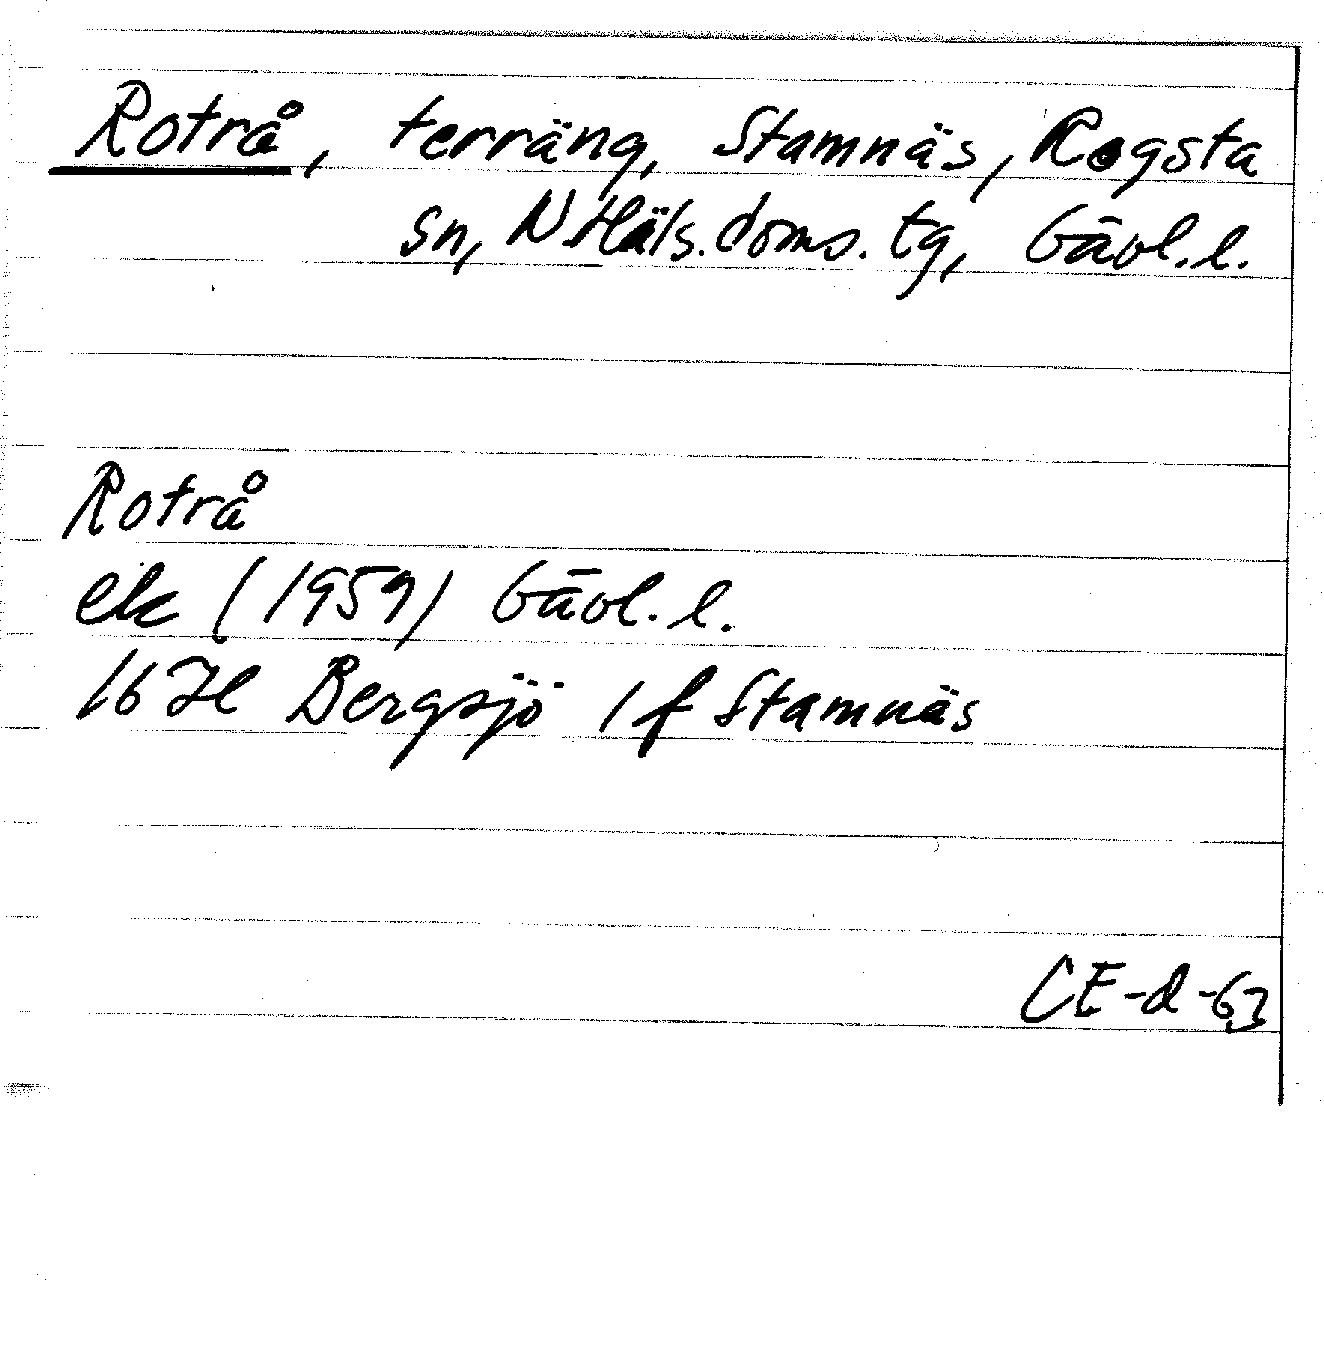 Roträ, terräng, Stamnäs, Rogsta
sn, N Häls. doms. tg, Gävl. l.
Roträ
ek (1959) Gävl. l.
16 H Bergsjö 1 f Stamnäs
CE-d-63